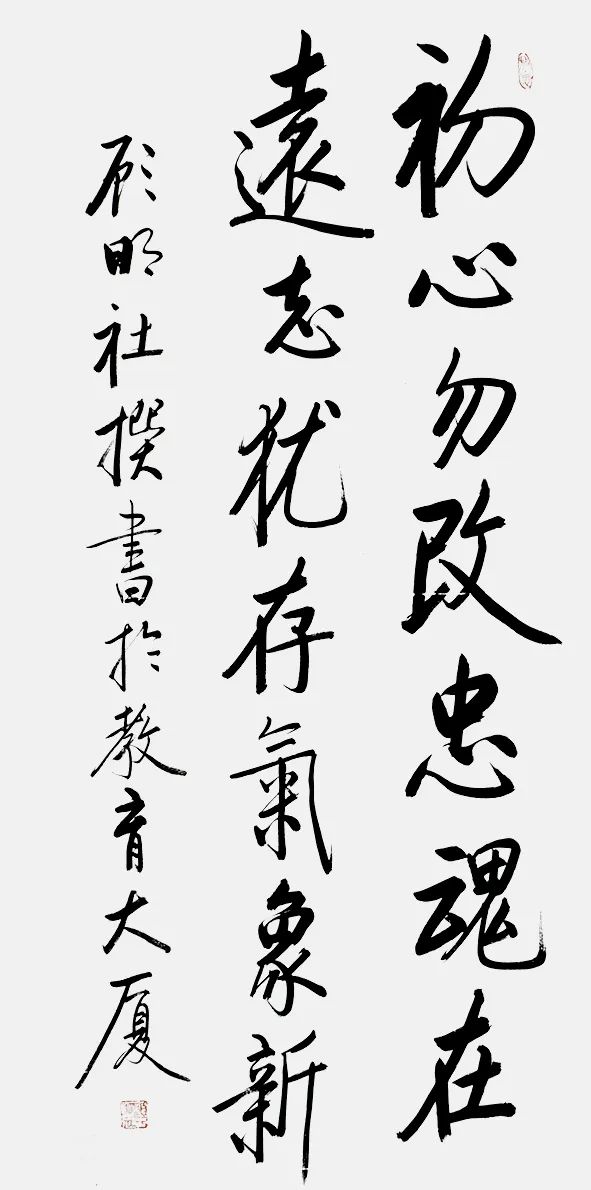 初心勿改忠魂在
遠志犹存氣象新
顾明社撰書於教育大厦